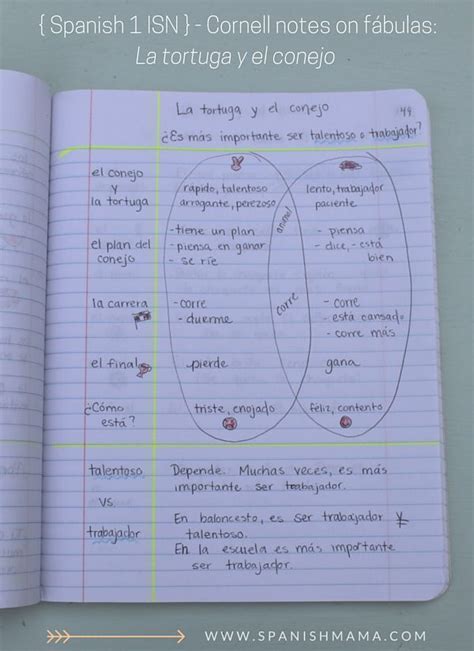 { Spanish 1 ISN } - Cornell notes on fábulas:
La tortuga y el conejo
La tortuga y el conejo 49
¿Es más importante ser talentoso o trabajador?
el conejo
y
la tortuga
rápido, talentoso
arrogante, perezoso
animal
lento, trabajador
paciente
el plan del
conejo
-tiene un plan
-piensa en ganar
- se ríe
- piensa
- dice, -está
bien
la carrera
-corre
- duerme
corre
- corre
- está cansado
- corre más
el final
pierde
gana
¿Cómo
está?
triste, enojado
feliz, contento
talentoso
vs.
trabajador
Depende. Muchas veces, es más
importante ser trabajador.
En baloncesto, es ser trabajador y
talentoso.
En la escuela es más importante
ser trabajador.
WWW.SPANISHMAMA.COM